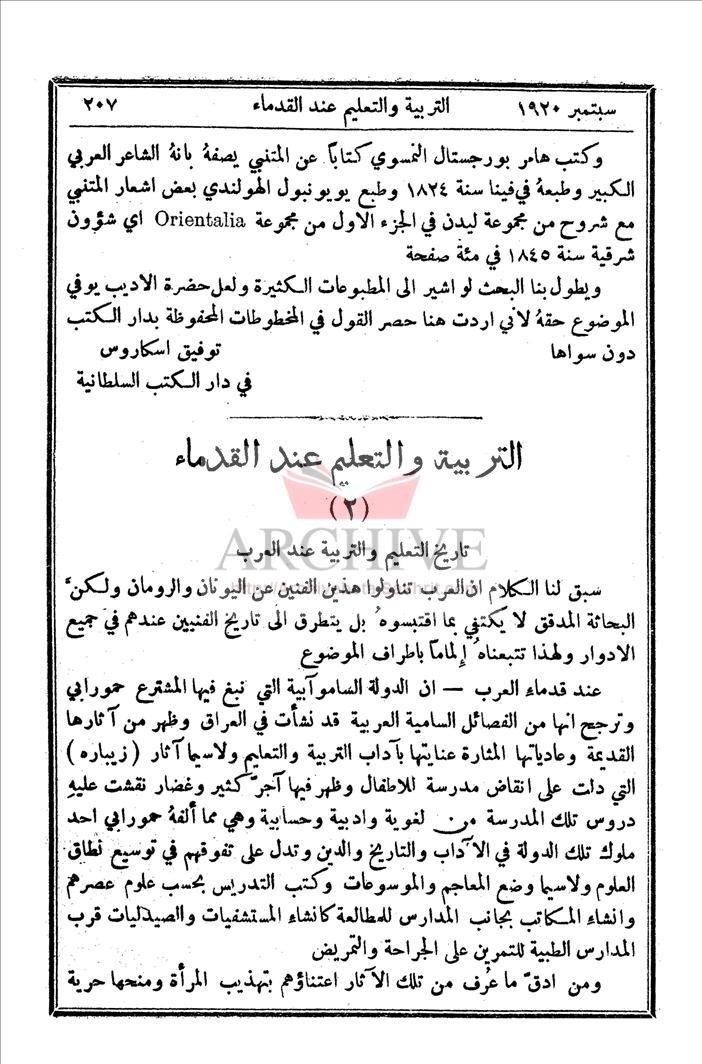 سبتمبر ١٩٢٠ التربية والتعليم عند القدماء ٢٠٧
وكتب هامر بورجستال النمسوي كتاباً عن المتنبي يصفهُ بانهُ الشاعر العربي
الكبير وطبعهُ في فينا سنة ١٨٢٤ وطبع يويونبول الهولندي بعض اشعار المتنبي
مع شروح من مجموعة ليدن في الجزء الاول من مجموعة Orientalia اي شؤون
شرقية سنة ١٨٤٥ في مئة صفحة
ويطول بنا البحث لو اشير الى المطبوعات الكثيرة ولعل حضرة الاديب يوفي
الموضوع حقهُ لاني اردت هنا حصر القول في المخطوطات المحفوظة بدار الكتب
دون سواها توفيق اسكاروس
في دار الكتب السلطانية
التربية والتعليم عند القدماء
(٢)
ARCHIVE
تاريخ التعليم والتربية عند العرب
سبق لنا الكلام ان العرب تناولوا هذين الفنين عن اليونان والرومان ولكنَّ
البحاثة المدقق لا يكتفي بما اقتبسوهُ بل يتطرق الى تاريخ الفنيين عندهم في جميع
الادوار ولهذا تتبعناهُ إلماماً باطراف الموضوع
عند قدماء العرب — ان الدولة الساموآبية التي نبغ فيها المشترع حمورابي
وترجح انها من الفصائل السامية العربية قد نشأت في العراق وظهر من آثارها
القديمة وعادياتها المثارة عنايتها بآداب التربية والتعليم ولاسيما آثار (زيباره)
التي دلت على انقاض مدرسة للاطفال وظهر فيها آجرّ كثير وغضار نقشت عليهِ
دروس تلك المدرسة من لغوية وادبية وحسابية وهي مما ألفهُ حمورابي احد
ملوك تلك الدولة في الآداب والتاريخ والدين وتدل على تفوقهم في توسيع نطاق
العلوم ولاسيما وضع المعاجم والموسوعات وكتب التدريس بحسب علوم عصرهم
وانشاء المكاتب بجانب المدارس للمطالعة كانشاء المستشفيات والصيدليات قرب
المدارس الطبية للتمرين على الجراحة والتمريض
ومن ادقّ ما عُرف من تلك الآثار اعتناؤهم بتهذيب المرأة ومنحها حرية